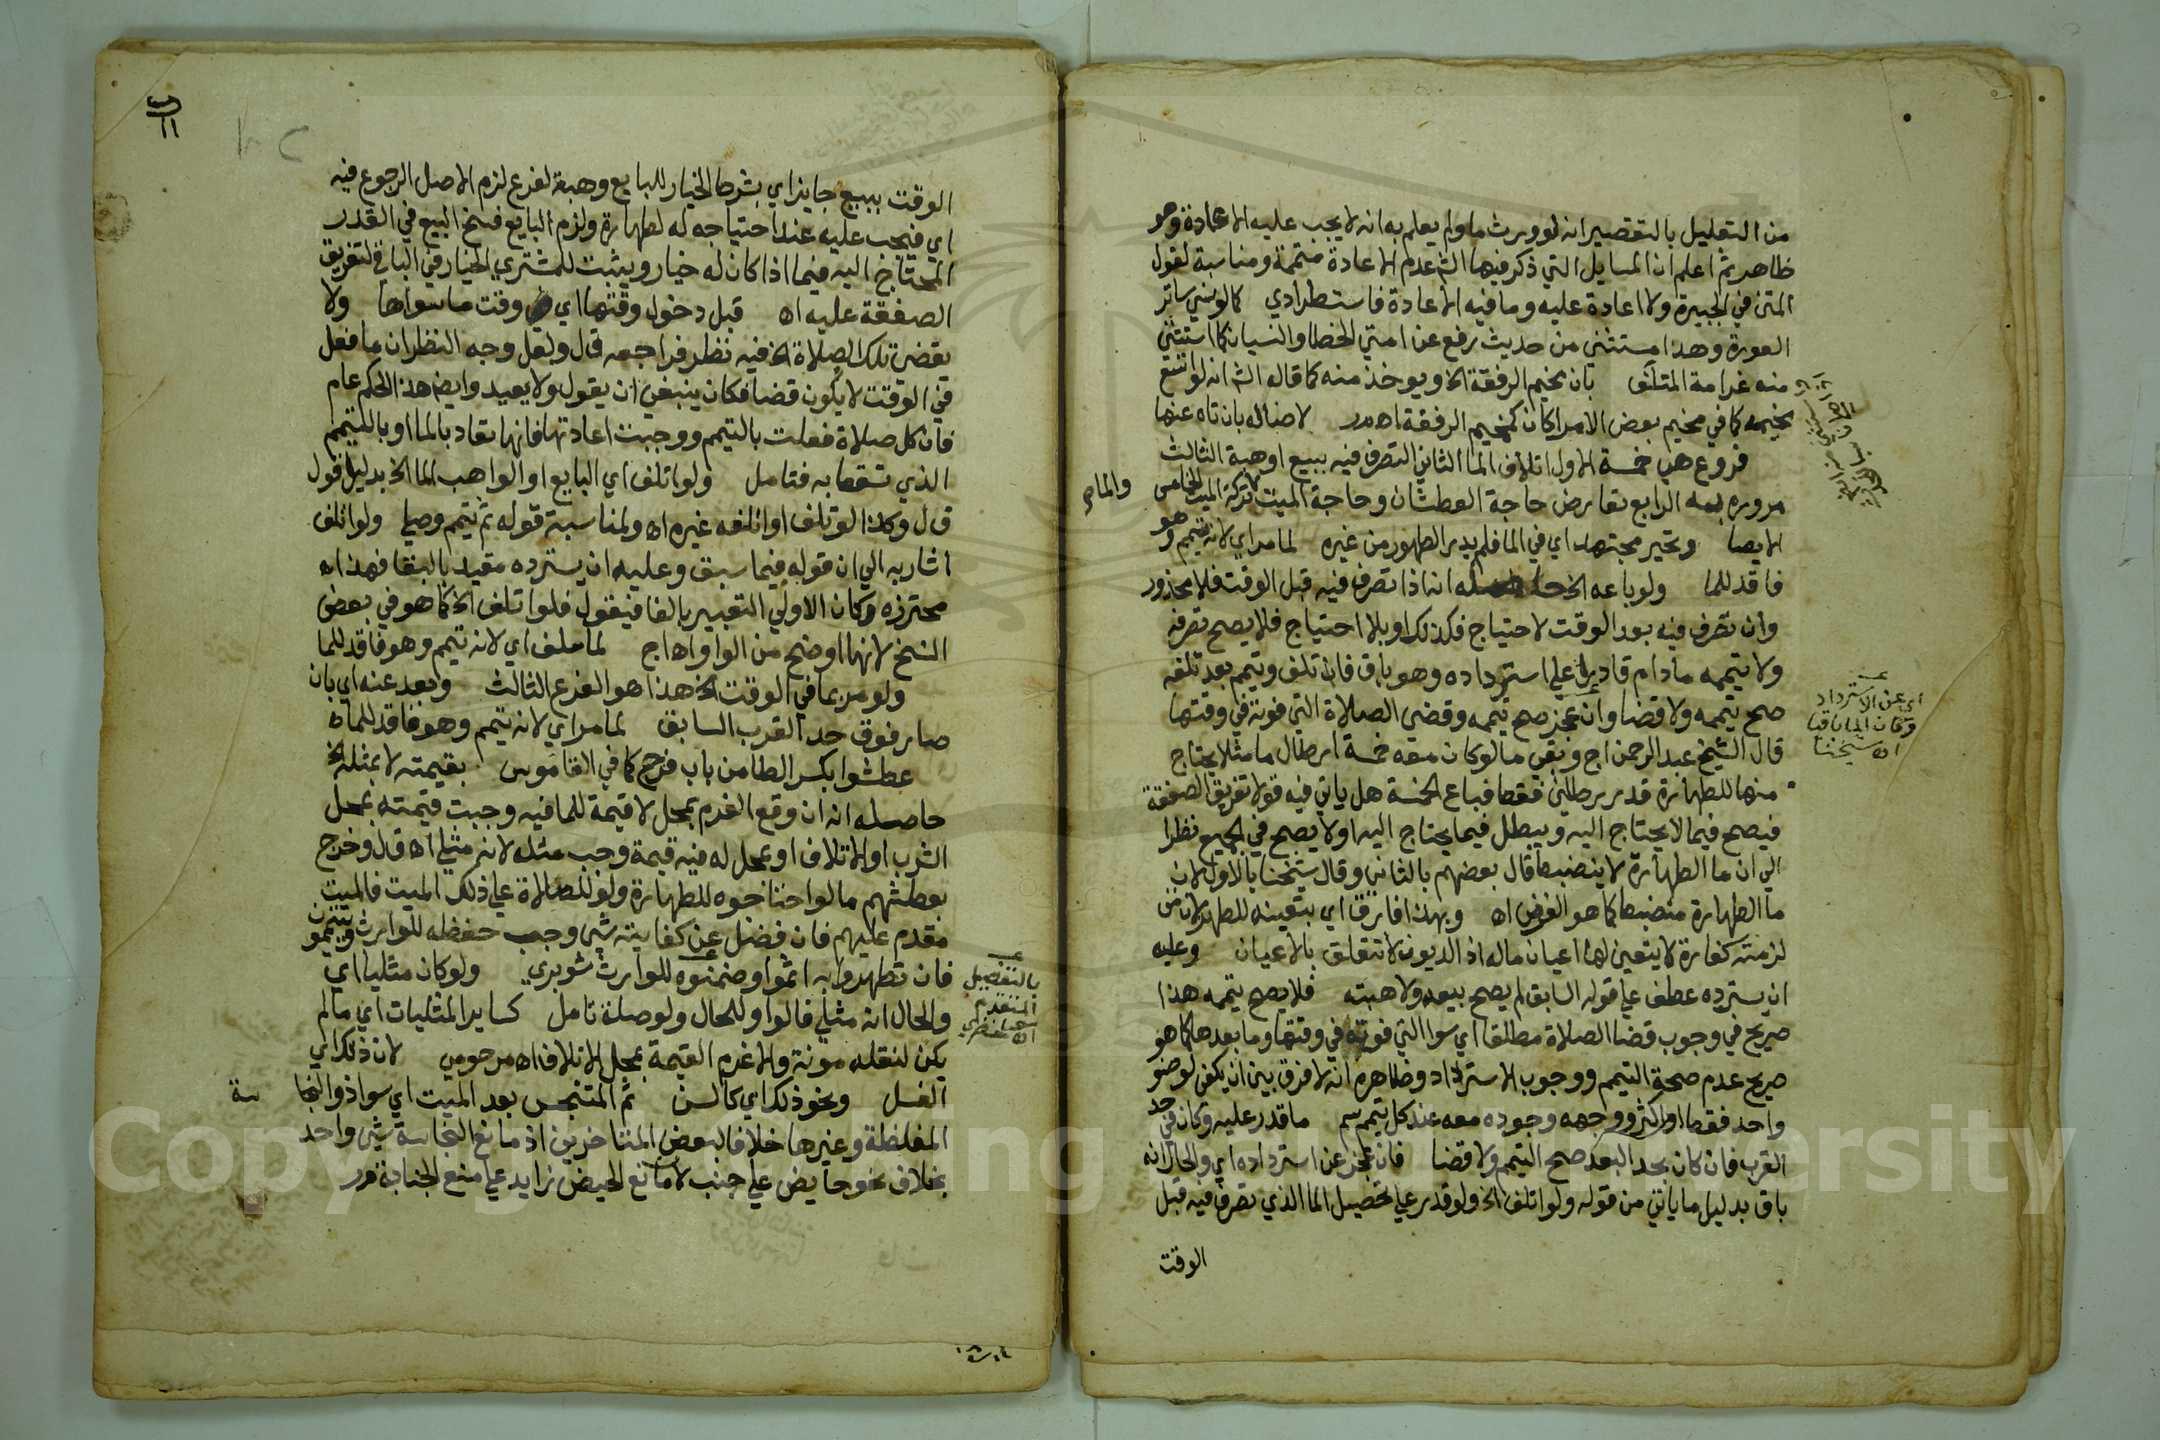 من التعليل بالتقصير انه لو ورث ما ولم يعلم به انه لا يجب عليه الاعادة وهو
ظاهر ثم اعلم ان المسايل التي ذكر فيها الش عدم الاعادة متممة ومناسبة لقول
المتن في الجبيرة ولا اعادة عليه وما فيه الاعادة فاستطرادي كما لو نسي ساتر
العورة وهذا مستثنى من حديث رفع عن امتي الخطا والنسيان كما استثني
منه غرامة المتلف بان مخيم الرفقة الخ ويوخذ منه كما قاله الش انه لو اتسع
مخيمه كما في مخيم بعض الامرا كان كمخيم الرفقة اه مر لا ضلاله بان تاه عنها
فروع هي خمسة الاول اتلاف الما الثاني التصرف فيه ببيع او هبة الثالث
مروره به الرابع تعارض حاجة العطشان وحاجة الميت لتركة الميت الخامس
الايصا وتحير مجتهد اي في الما فلم يدر الطهور من غيره لما مر اي لانه تيمم وهو
فاقد للما ولو باعه الخ حاصله انه اذا تصرف فيه قبل الوقت فلا محذور
وان تصرف فيه بعد الوقت لاحتياج فكذلك او بلا احتياج فلا يصح تصرفه
ولا تيممه ما دام قادرا على استرداده وهو باق فان تلف وتيمم بعد تلفه
صح تيممه ولا قضا وان عجز صح تيممه وقضى الصلاة التي فوته في وقتها
قال الشيخ عبد الرحمن اج وبقي ما لو كان معه خمسة ارطال ما مثلا يحتاج
منها للطهارة قدر رطلين فقط فباع الخمسة هل ياتي فيه قولا تفريق الصفقة
فيصح فيما لا يحتاج اليه ويبطل فيما يحتاج اليه او لا يصح في الجميع نظرا
الي ان ما الطهارة لا ينضبط قال بعضهم بالثاني وقال شيخنا بالاول لان
ما الطهارة منضبط كما هو الفرض اه وبهذا فارق اي بتعينه للطهر لان من
لزمته كفارة لا يتعين لها اعيان ماله اذ الديون لا تتعلق بالاعيان وعليه
ان يسترده عطف علي قوله السابق لم يصح بيعه ولا هبته فلا يصح تيممه هذا
صريح في وجوب قضا الصلاة مطلقا اي سوا التي فوته في وقتها وما بعدها كما هو
صريح عدم صحة التيمم ووجوب الاسترداد وظاهره انه لا فرق بين ان يكفي لوضو
واحد فقط او اكثر ووجهه وجوده معه عند كل تيمم سم ما قدر عليه وكان في حد
القرب فان كان بحد البعد صح التيمم ولا قضا فان عجز عن استرداده اي والحال انه
باق بدليل ما ياتي من قوله ولو اتلف الخ ولو قدر علي تحصيل الما الذي تصرف فيه قبل
الوقت
والما
اي عن الاسترداد
وكان الما باقيا
اه شيخنا
الوقت ببيع جايز اي بشرط الخيار للبايع وهبة لفرع لزم الاصل الرجوع فيه
اي فيجب عليه عند احتياجه له لطهارة ولزم البايع فسخ البيع في القدر
المحتاج اليه فيما اذا كان له خيار ويثبت للمشتري الخيار في الباقي لتفريق
الصفقة عليه اه قبل دخول وقتها اي وقت ما سواها ولا
يقضي تلك الصلاة الخ فيه نظر فراجعه قال ولعل وجه النظر ان ما فعل
في الوقت لا يكون قضا فكان ينبغي ان يقول ولا يعيد وايض هذا الحكم عام
فان كل صلاة فعلت بالتيمم ووجبت اعادتها فانها تعاد بالما او بالتيمم
الذي تسقط به فتامل ولو اتلف اي البايع او الواهب الما الخ بدليل قول
ق ل وكذا لو تلف او اتلفه غيره اه ولمناسبة قوله ثم تيمم وصلي ولو اتلف
اشار به الي ان قوله فيما سبق وعليه ان يسترده مقيد بالبقا فهذا اه
محترزه وكان الاولي التعبير بالفا فيقول فلو اتلف الخ كما هو في بعض
النسخ لانها اوضح من الواو اه اج لما سلف اي لانه تيمم وهو فاقد للما
ولو مر بما في الوقت الخ هذا هو الفرع الثالث وبعد عنه اي بان
صار فوق حد القرب السابق لما مر اي لانه تيمم وهو فاقد للما اه
عطشوا بكسر الطا من باب فرح كما في القاموس بقيمته لا بمثله الخ
حاصله انه ان وقع الغرم بمحل لا قيمة للما فيه وجبت قيمته بمحل
الشرب او الاتلاف او بمحل له فيه قيمة وجب مثله لانه مثلي اه ق ل وخرج
بعطشهم ما لو احتاجوه للطهارة ولو للصلاة علي ذلك الميت فالميت
مقدم عليهم فان فضل عن كفايته شي وجب حفظه للوارث ويتيممون
فان تطهروا به اثموا وضمنوه للوارث شوبري ولو كان مثليا اي
والحال انه مثلي فالواو للحال ولو صلة تامل كساير المثليات اي ما لم
يكن لنقله مونة والا غرم القيمة بمحل الاتلاف اه مرحومي لان ذلك اي
الغسل ونحو ذلك اي كالسن ثم المتنجس بعد الميت اي سوا ذو النجاسة
المغلظة وغيرها خلافا لبعض المتاخرين اذ مانع النجاسة شي واحد
بخلاف نحو حايض علي جنب لان مانع الحيض زايد علي منع الجنابة مر
بالتفصيل
المتقدم